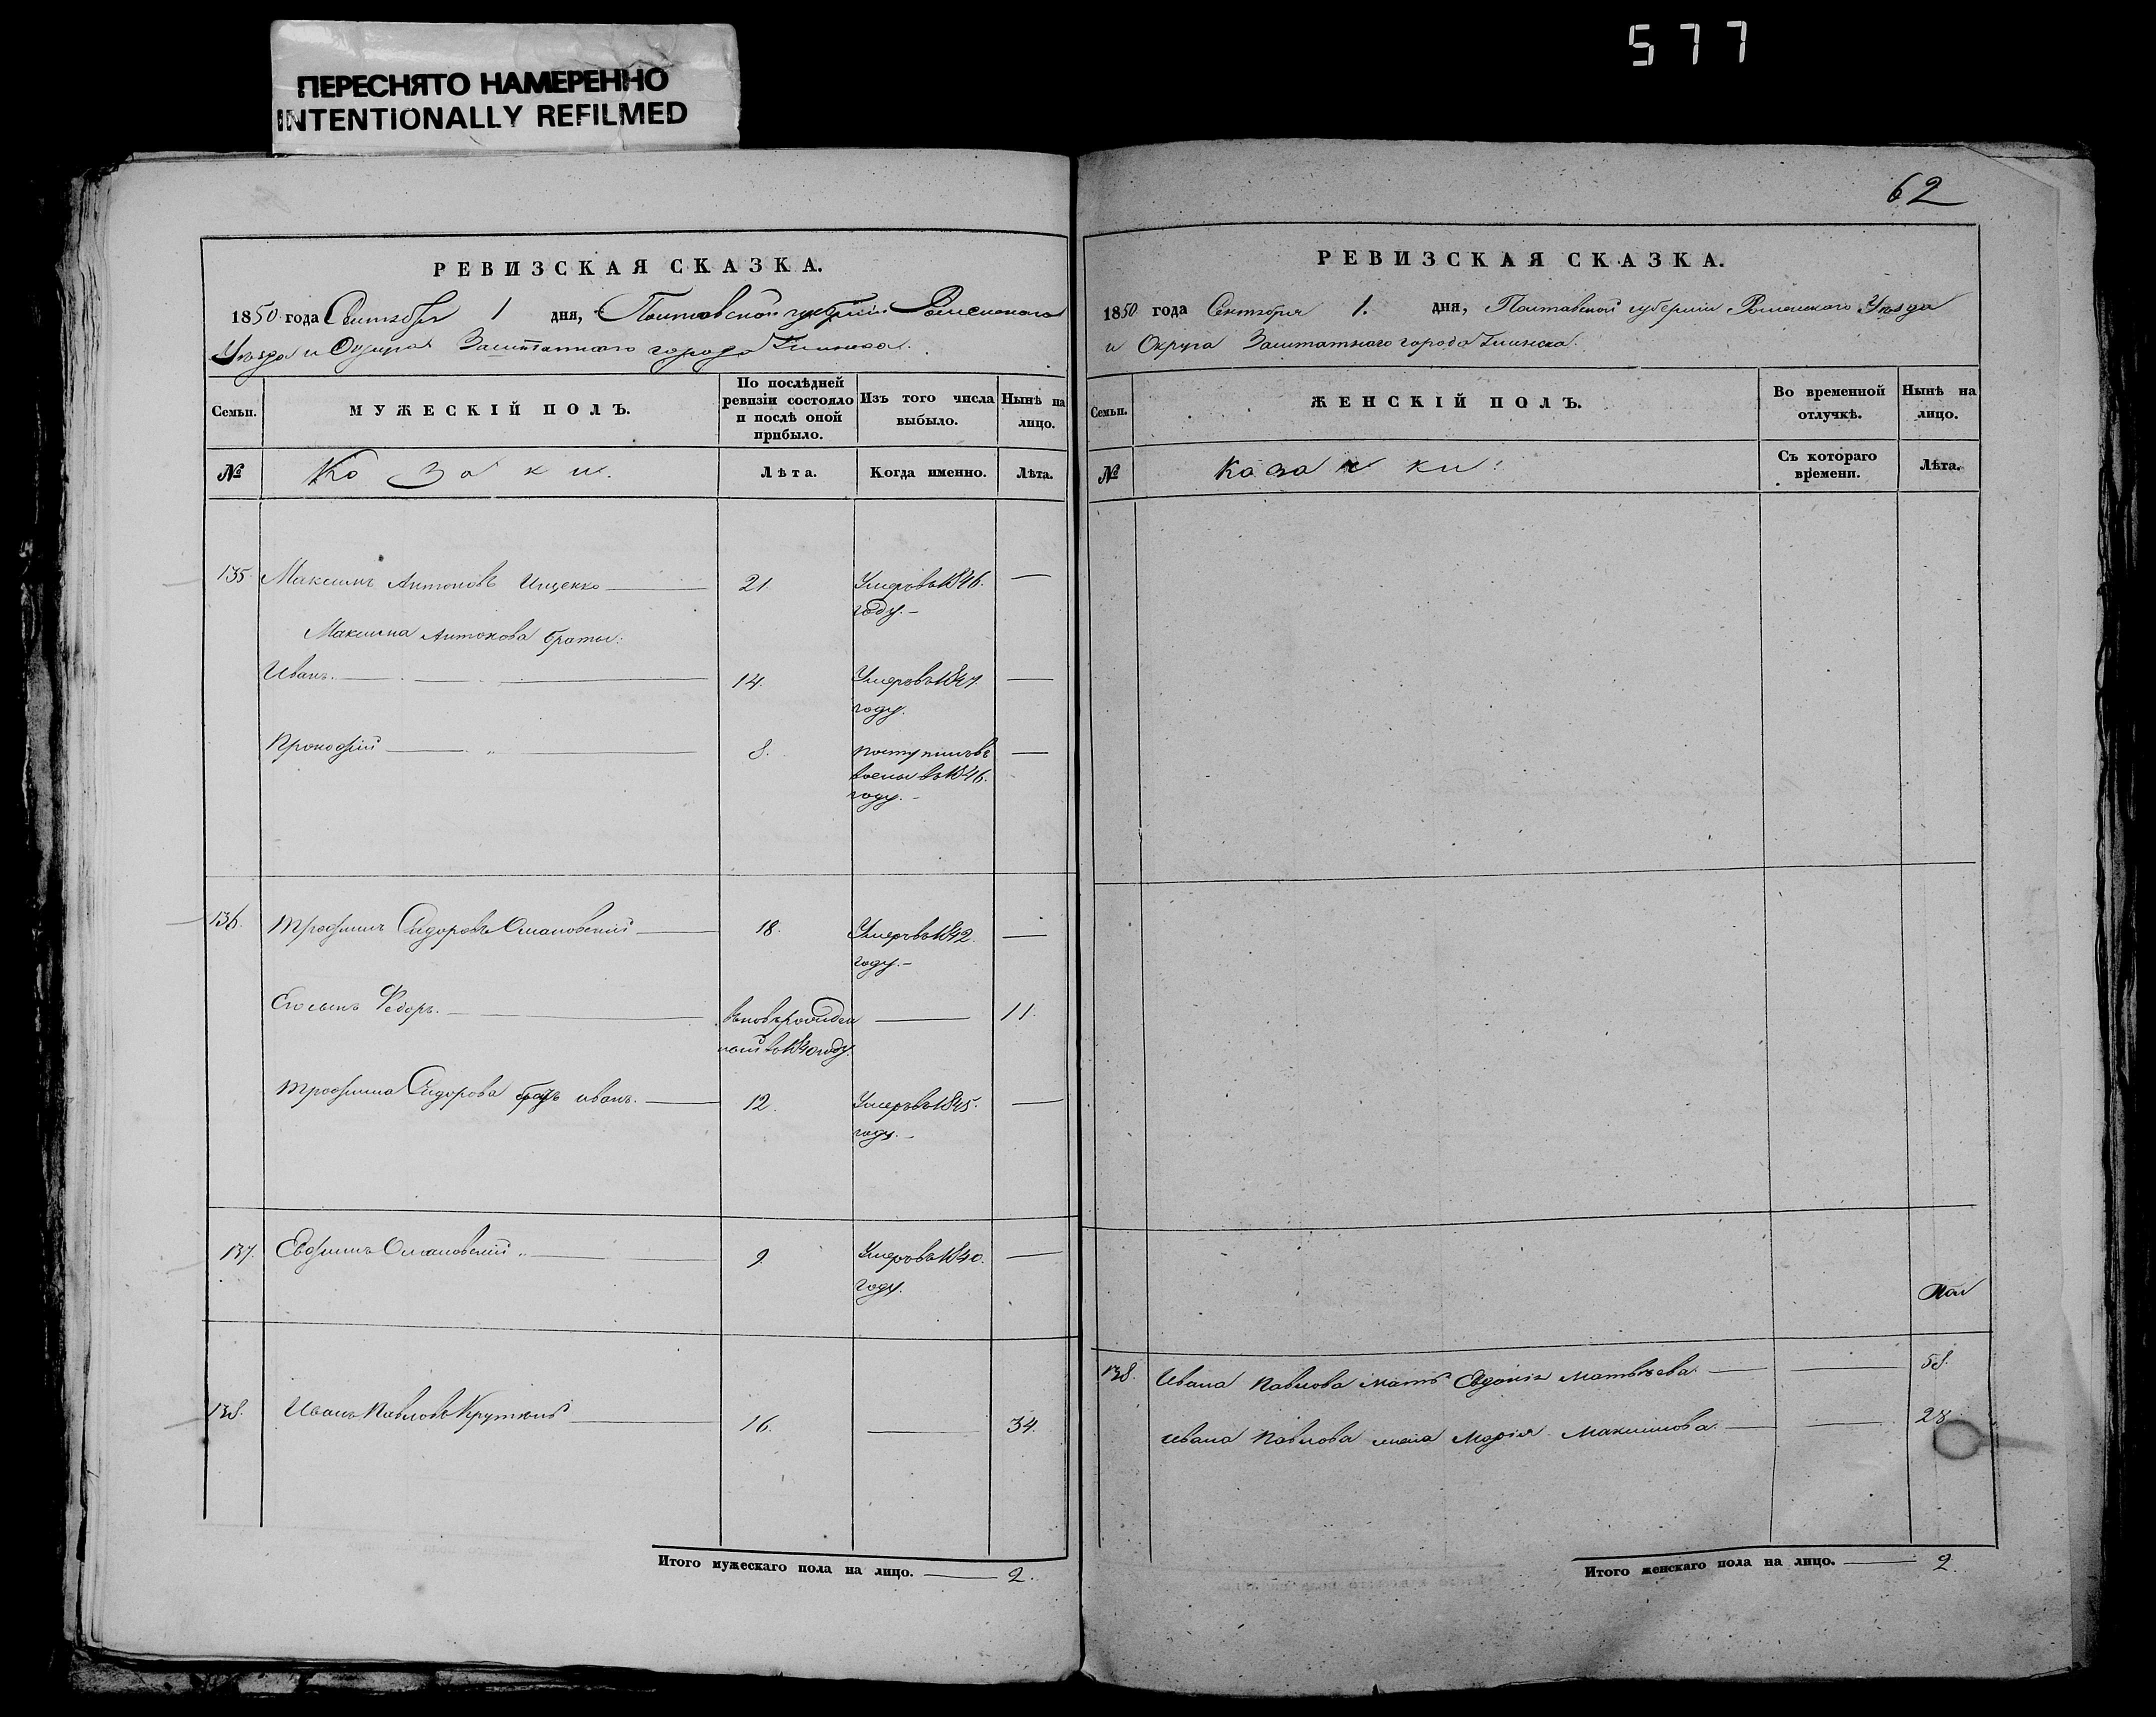 577
ПЕРЕСНЯТО НАМЕРЕННО
INTENTIONALLY REFILMED
РЕВИЗСКАЯ СКАЗКА.
1850 года Сентября 1 дня, Полтавской губерніи Роменского
Уѣзда и Округа Заштатного города Глинска.
Семьи.
МУЖЕСКІЙ ПОЛЪ.
По послѣдней
ревизіи состояло
и послѣ оной
прибыло.
Изъ того числа
выбыло.
Нынѣ на
лицо.
№
Козаки.
Лѣта.
Когда именно.
Лѣта.
135. Максимъ Антоновъ Ищенко — 21. Умеръ въ 1846. —
году. —
Максима Антонова братья:
Иванъ. — 14. Умеръ въ 1847. —
году.
Прокофій — " — 8. поступилъ въ —
въ 1846.
году. —
136. Трофимъ Сидоровъ Смановскій — 18. Умеръ въ 1842. —
году. —
Его сынъ Федоръ. — вновь рожден — 11.
ный въ 1840 году.
Трофима Сидорова братъ иванъ. — 12. Умеръ въ 1845. —
году. —
137. Евфимъ Смановскій " — 9. Умеръ въ 1840. —
году.
138. Иванъ Павловъ Крутконь — 16. — 34.
Итого мужескаго пола на лицо. — 2.
62
РЕВИЗСКАЯ СКАЗКА.
1850 года Сентября 1. дня, Полтавской губерніи Роменского Уѣзда
и Округа Заштатнаго города Глинска.
Семьи.
ЖЕНСКІЙ ПОЛЪ.
Во временной
отлучкѣ.
Нынѣ на
лицо.
№
Козачки.
Съ котораго
времени.
Лѣта.
138. Ивана Павлова мать Евдокія Матвѣева — — 58.
Ивана Павлова жена Марія Максимова. — — 28
Итого женскаго пола на лицо. — 2.